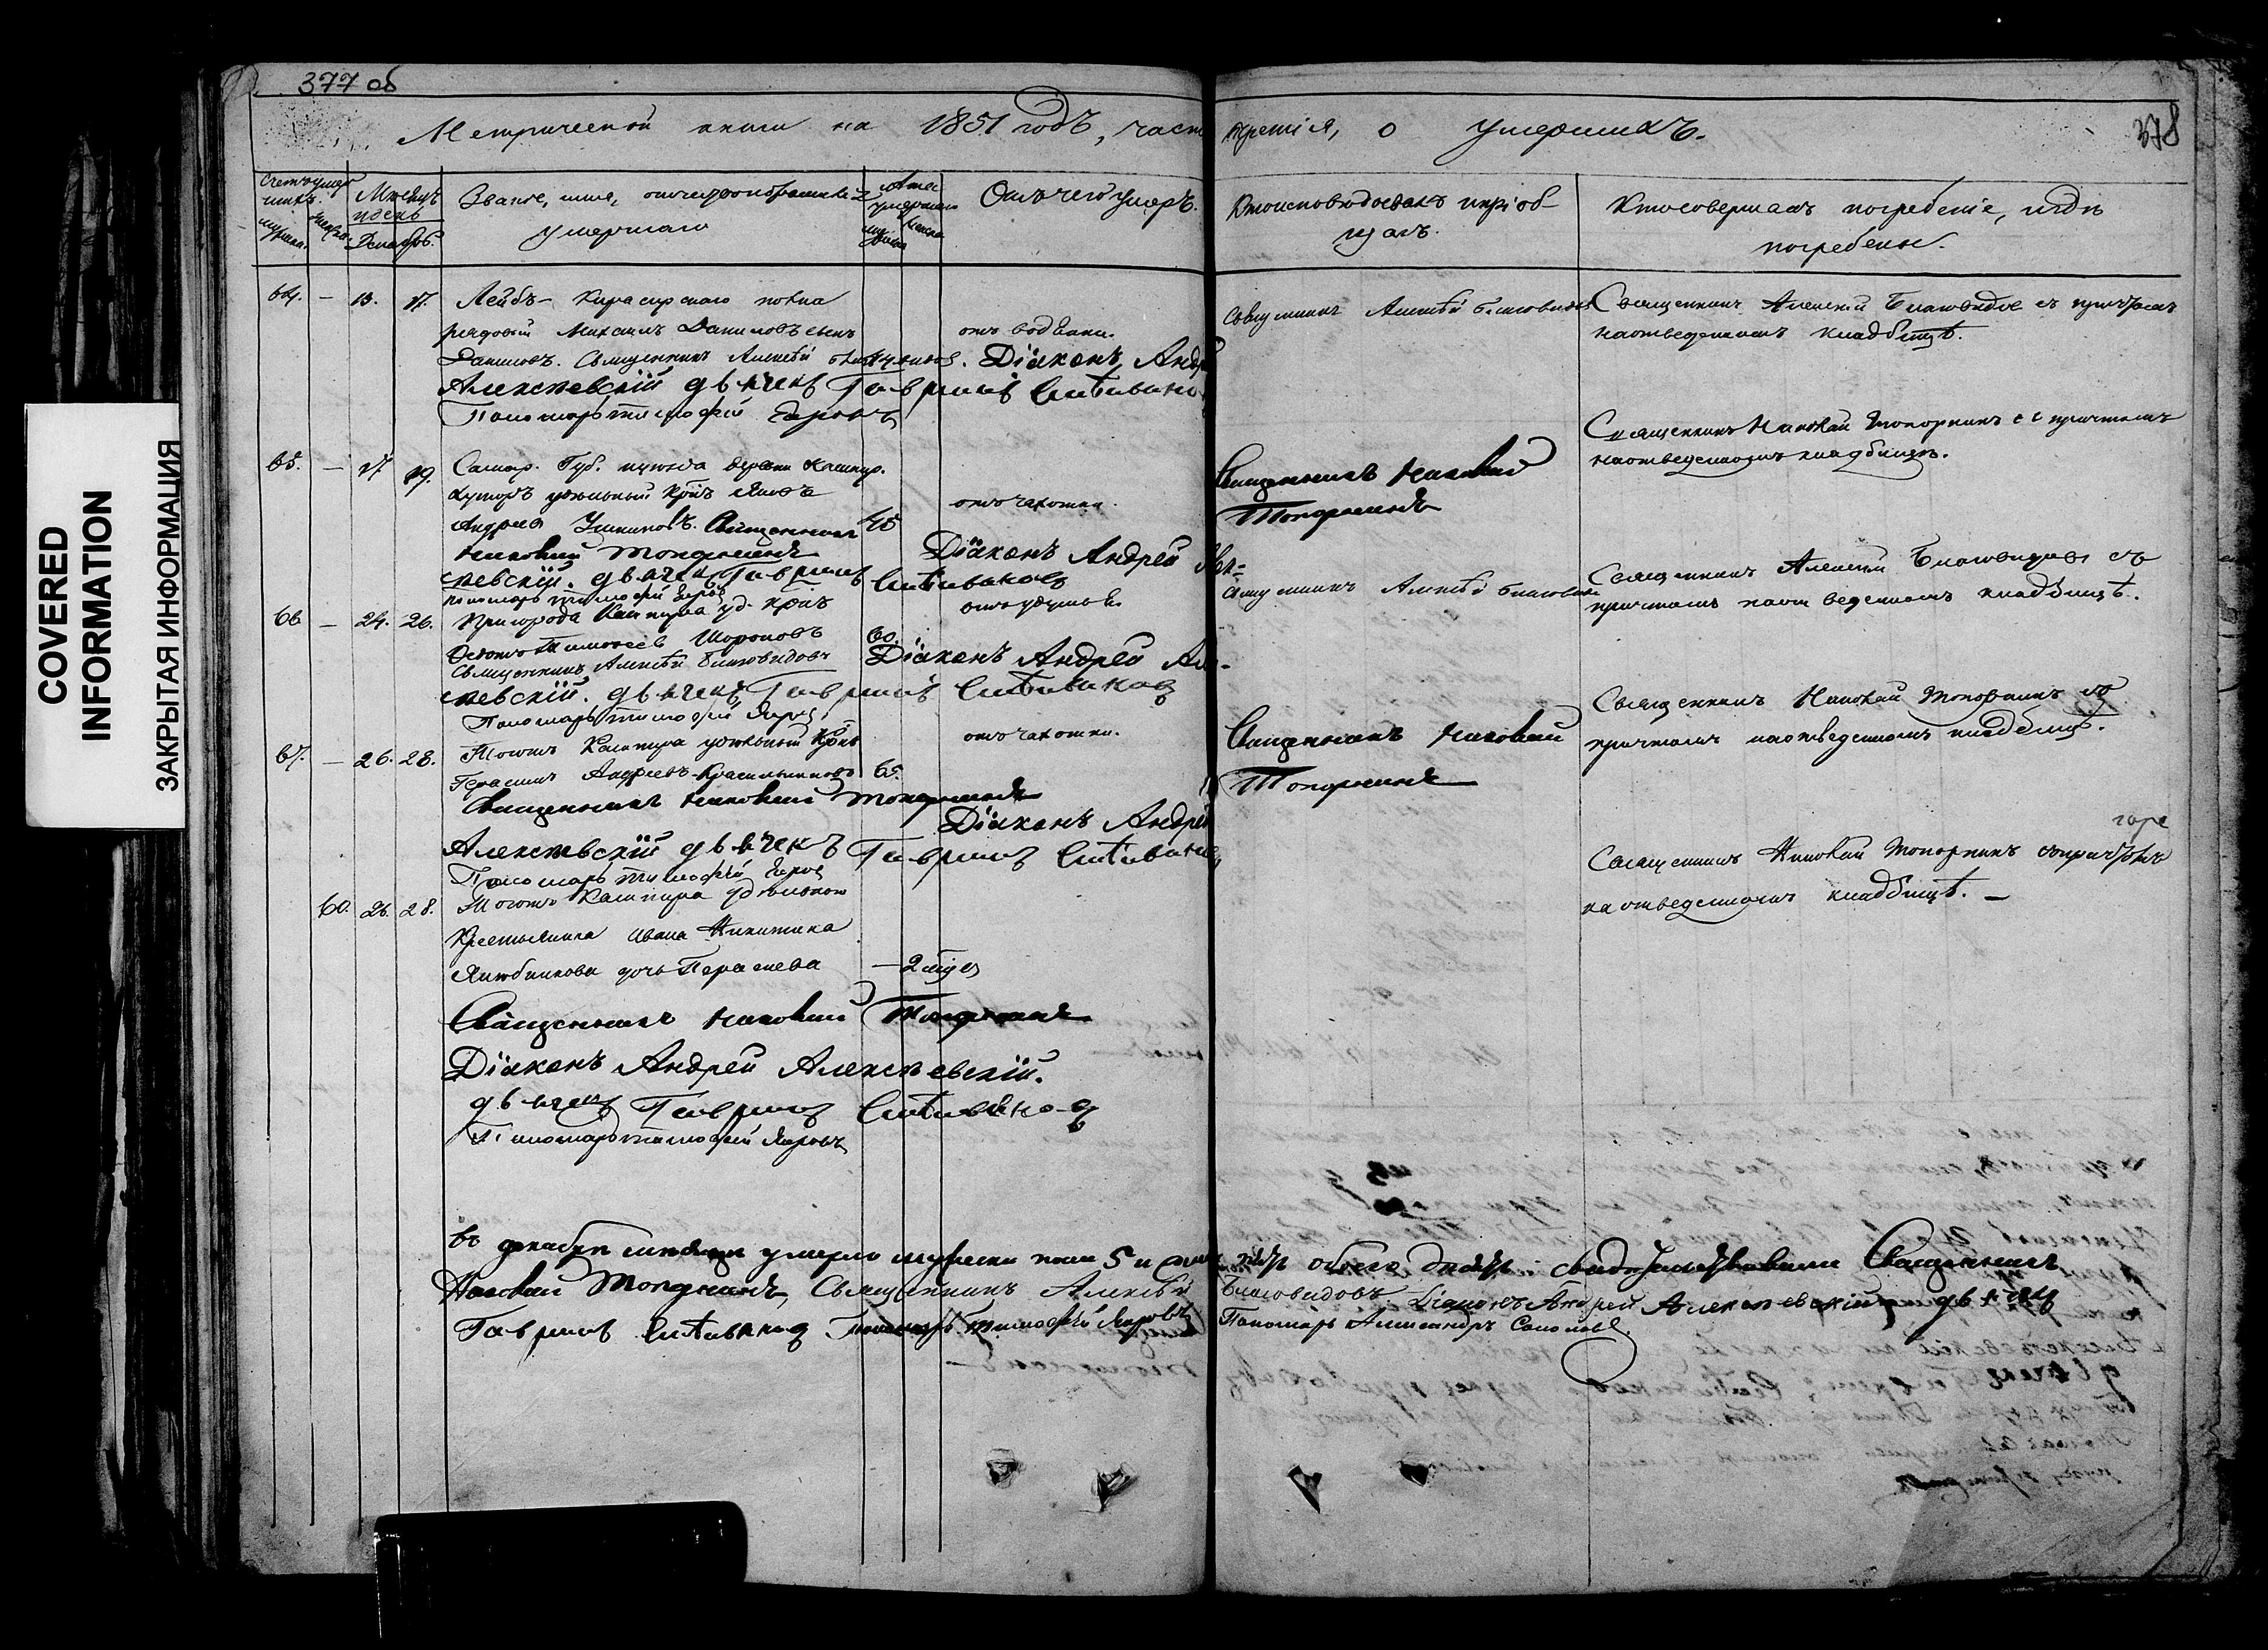 377 об
378
Метрической книги на 1851 годъ, часть третія, о умершихъ.
Счетъ умершихъ.
мужеска. женска.
Мѣсяцъ и день
Декабрь.
Званіе, имя, отчество и фамилія умершаго
Лѣта умершаго
мужеска женска
Отъ чего умеръ.
Кто исповѣдовалъ и пріобщалъ.
Кто совершалъ погребеніе, и гдѣ погребены.
64. — 13. 17. Лейбъ-Кирасирскаго полка
рядовой Михаилъ Даниловъ сынъ
Даниловъ. Священникъ Алексѣй Благовидовъ. Діаконъ Андрей
Алексѣевскій дьячекъ Гавриилъ
Пономарь Тимофей Яровъ
отъ водянки.
Священникъ Алексѣй Благовидовъ
Священникъ Алексѣй Благовидовъ съ причтомъ
на отведенномъ кладбищѣ.
65. — 17 19. Самар. Губ. Кашпир.
хуторъ удѣльный Крѣнъ
Андреевъ Священникъ 45
Николай Топорнинъ
Діаконъ Андрей Алек=
сѣевскій. дьячекъ Гавриилъ
Пономарь Тимофей Яровъ
отъ чахотки.
Священникъ Николай
Топорнинъ
Священникъ Николай Топорнинъ съ причтомъ
на отведенномъ кладбищѣ.
66 — 24. 26. Пригорода Кашпира уд. крѣнъ
Тимофеевъ 60.
Священникъ Алексѣй Благовидовъ Діаконъ Андрей Алек-
сѣевскій. дьячекъ Гавриилъ
Пономарь Тимофей Яровъ
отъ удушья
Священникъ Алексѣй Благовидовъ
Священникъ Алексѣй Благовидовъ съ
причтомъ на отведенномъ кладбищѣ.
67. — 26. 28. Тогожъ Кашпира удѣльный Крѣнъ
Герасимъ Андреевъ Красильниковъ 65.
Священникъ Николай Топорнинъ
Діаконъ Андрей
Алексѣевскій дьячекъ Гавриилъ
Пономарь Тимофей Яровъ
отъ чахотки.
Священникъ Николай
Топорнинъ
Священникъ Николай Топорнинъ съ
причтомъ на отведенномъ кладбищѣ.
60. 26. 28. Тогожъ Кашпира удѣльнаго
Крестьянина Ивана Никитина
дочь — 2 мѣс.
Священникъ Николай Топорнинъ
Діаконъ Андрей Алексѣевскій.
дьячекъ Гавриилъ
Пономарь Тимофей Яровъ
Священникъ Николай Топорнинъ съ причтомъ
на отведенномъ кладбищѣ. —
Въ декабрѣ мѣсяцѣ умерло мужеска пола 5 и обоего свидѣтельствовали Священникъ
Николай Топорнинъ, Священникъ Алексѣй Благовидовъ Діаконъ Андрей Алексѣевскій дьячекъ
Гавриилъ Пономарь Тимофей Яровъ Пономарь Александръ Соколовъ.
COVERED
INFORMATION
ЗАКРЫТАЯ ИНФОРМАЦИЯ